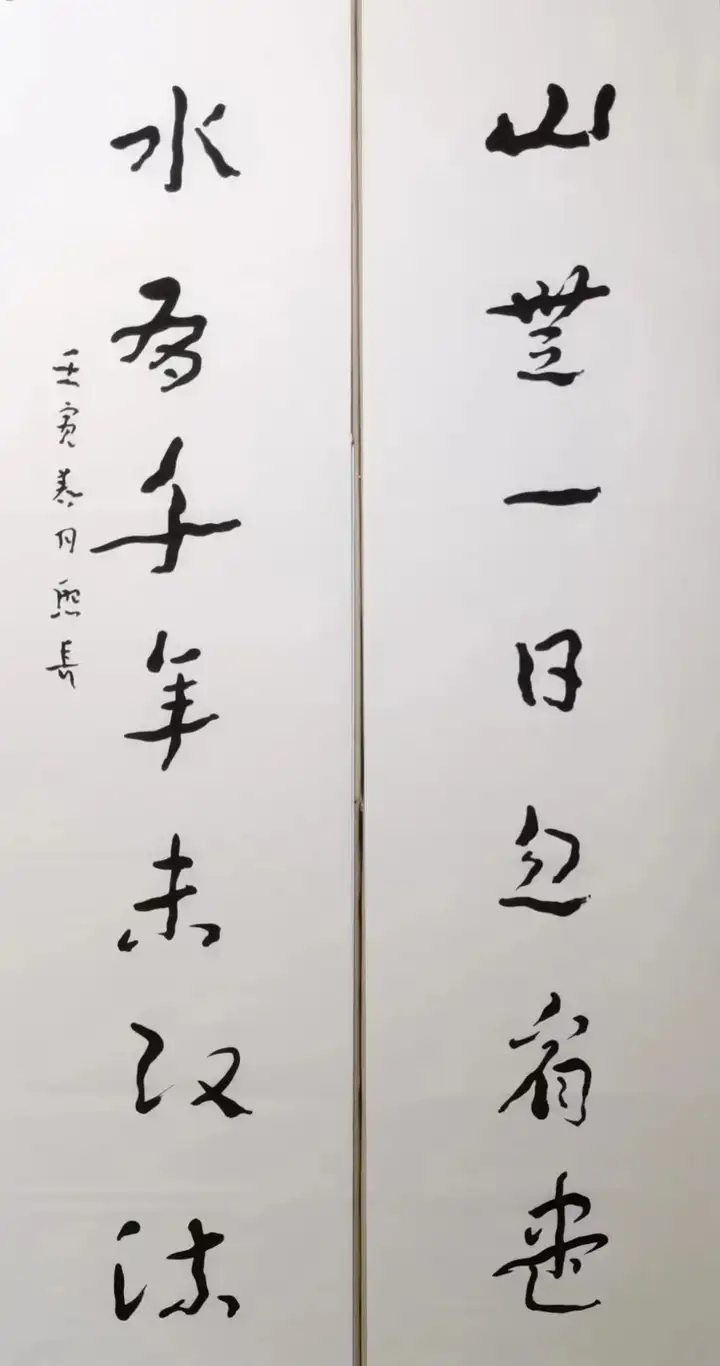 山無一日忽看
水有千年未改流
壬寅春月熙長